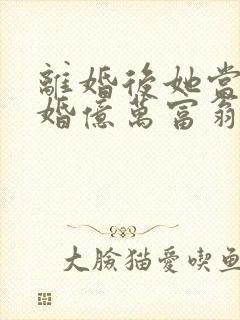 離婚後她當
婚億萬富翁
大臉猫愛喫鱼